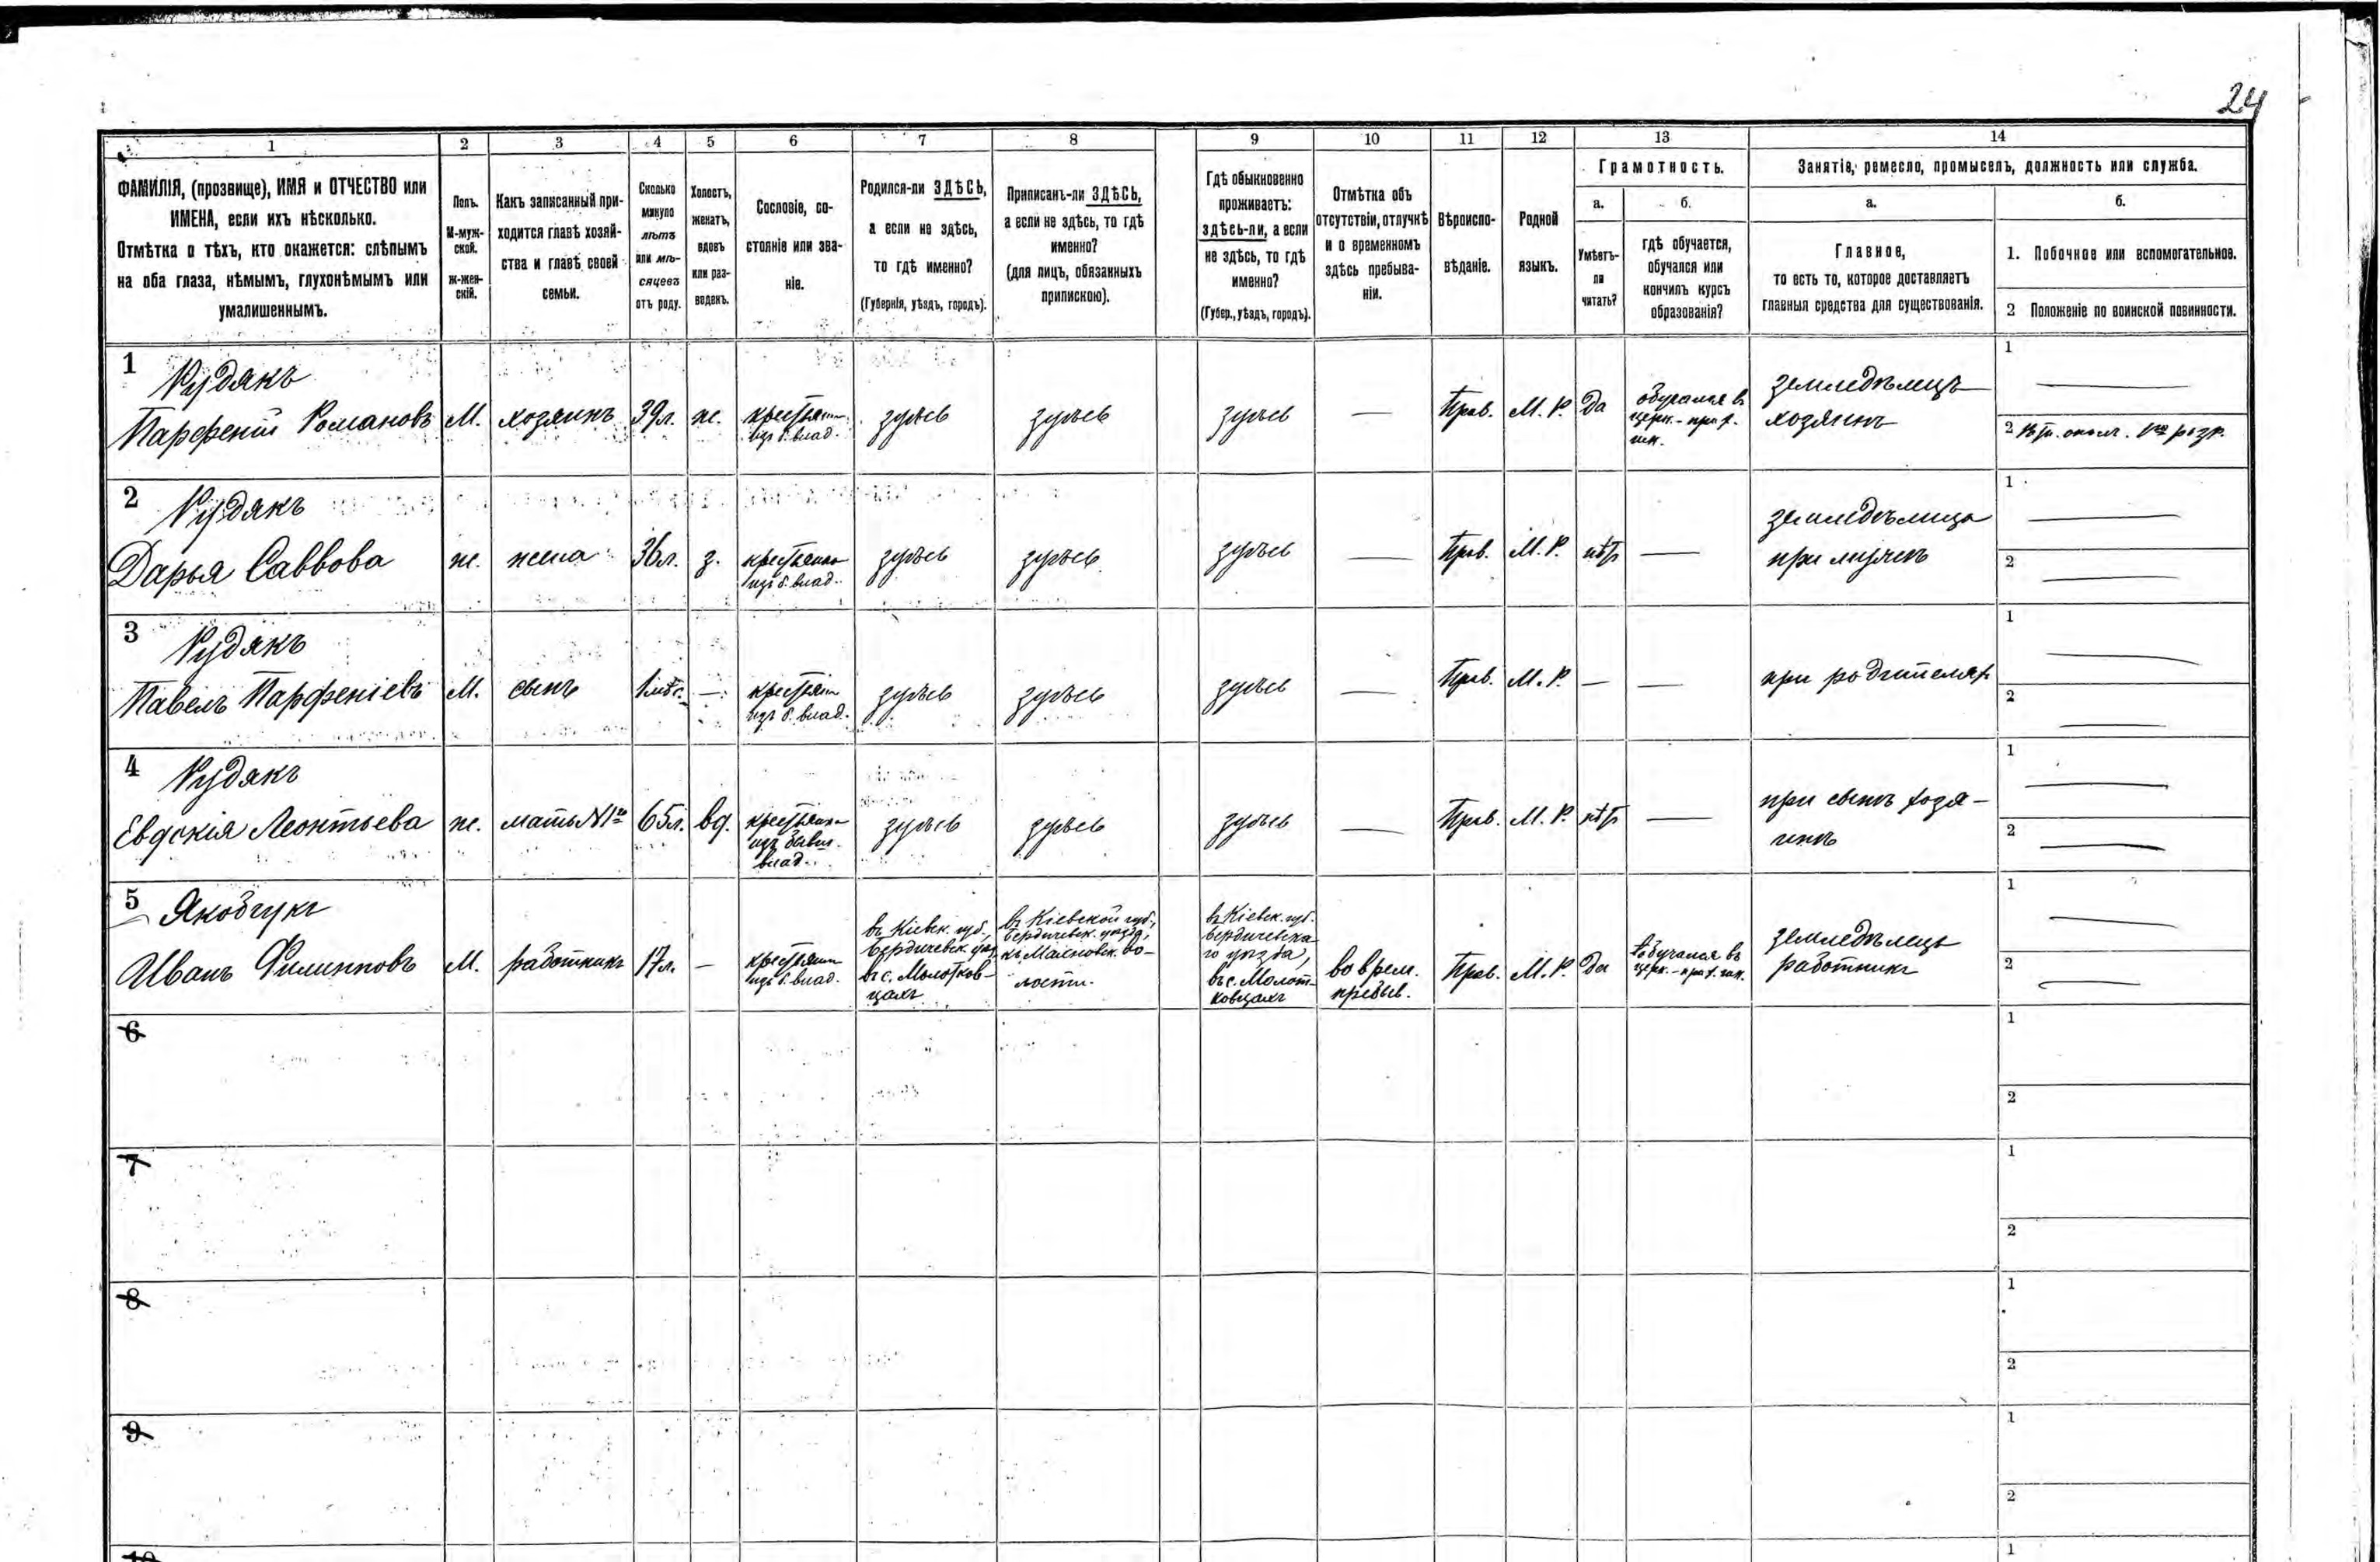 24
1 2 3 4 5 6 7 8 9 10 11 12 13 14
ФАМИЛІЯ, (прозвище), ИМЯ и ОТЧЕСТВО или
ИМЕНА, если ихъ нѣсколько.
Отмѣтка о тѣхъ, кто окажется: слѣпымъ
на оба глаза, нѣмымъ, глухонѣмымъ или
умалишеннымъ.
Полъ.
М-муж-
ской.
ж-жен-
скій.
Какъ записанный при-
ходится главѣ хозяй-
ства и главѣ своей
семьи.
Сколько
минуло
лѣтъ
или мѣ-
сяцевъ
отъ роду.
Холостъ,
женатъ,
вдовъ
или раз-
веденъ.
Сословіе, со-
стояніе или зва-
ніе.
Родился-ли ЗДѢСЬ,
а если не здѣсь,
то гдѣ именно?
(Губернія, уѣздъ, городъ).
Приписанъ-ли ЗДѢСЬ,
а если не здѣсь, то гдѣ
именно?
(для лицъ, обязанныхъ
припискою).
Гдѣ обыкновенно
проживаетъ:
здѣсь-ли, а если
не здѣсь, то гдѣ
именно?
(Губер., уѣздъ, городъ).
Отмѣтка объ
отсутствіи, отлучкѣ
и о временномъ
здѣсь пребыва-
ніи.
Вѣроиспо-
вѣданіе.
Родной
языкъ.
Грамотность.
а.
Умѣетъ-
ли
читать?
б.
гдѣ обучается,
обучался или
кончилъ курсъ
образованія?
Занятіе, ремесло, промыселъ, должность или служба.
а.
Главное,
то есть то, которое доставляетъ
главныя средства для существованія.
б.
1. Побочное или вспомогательное.
2 Положеніе по воинской повинности.
1 Рудякъ
Парфеній Романовъ
М.
хозяинъ
39л.
ж.
крестьян.
изъ б. влад.
здѣсь
здѣсь
здѣсь
—
Прав.
М. Р.
Да
обучался въ
церк.-прих.
шк.
земледѣлецъ
хозяинъ
1 —
2
2 Рудякъ
Дарья Саввова
ж.
жена
36л.
з.
крестьянка
изъ б. влад.
здѣсь
здѣсь
здѣсь
—
Прав.
М. Р.
нѣтъ
—
земледѣлица
при мужѣ
1 —
2 —
3 Рудякъ
Павелъ Парфеніевъ
М.
сынъ
1мѣс.
—
крестьян.
изъ б. влад.
здѣсь
здѣсь
здѣсь
—
Прав.
М. Р.
—
—
при родителях
1 —
2 —
4 Рудякъ
Евдокія Леонтьева
ж.
мать №1го
65л.
вд.
крестьянка
изъ бывш.
влад.
здѣсь
здѣсь
здѣсь
—
Прав.
М. Р.
нѣтъ
—
при сынѣ хозя-
инѣ
1 —
2 —
5 Якобчукъ
Иванъ Филипповъ
М.
работникъ
17л.
—
крестьян.
изъ б. влад.
въ Кіевск. губ.,
Бердичевск. уѣз.
въ с. Молотков-
цахъ
въ Кіевской губ.,
Бердичевск. уѣзда,
къ во-
лости.
въ Кіевск. губ.
Бердичевска-
го уѣзда,
въ с. Молот-
ковцахъ
во врем.
пребыв.
Прав.
М. Р.
Да
обучался въ
церк.-прих. шк.
земледѣлецъ
работникъ
1 —
2 —
6
1
2
7
1
2
8
1
2
9
1
2
10
1